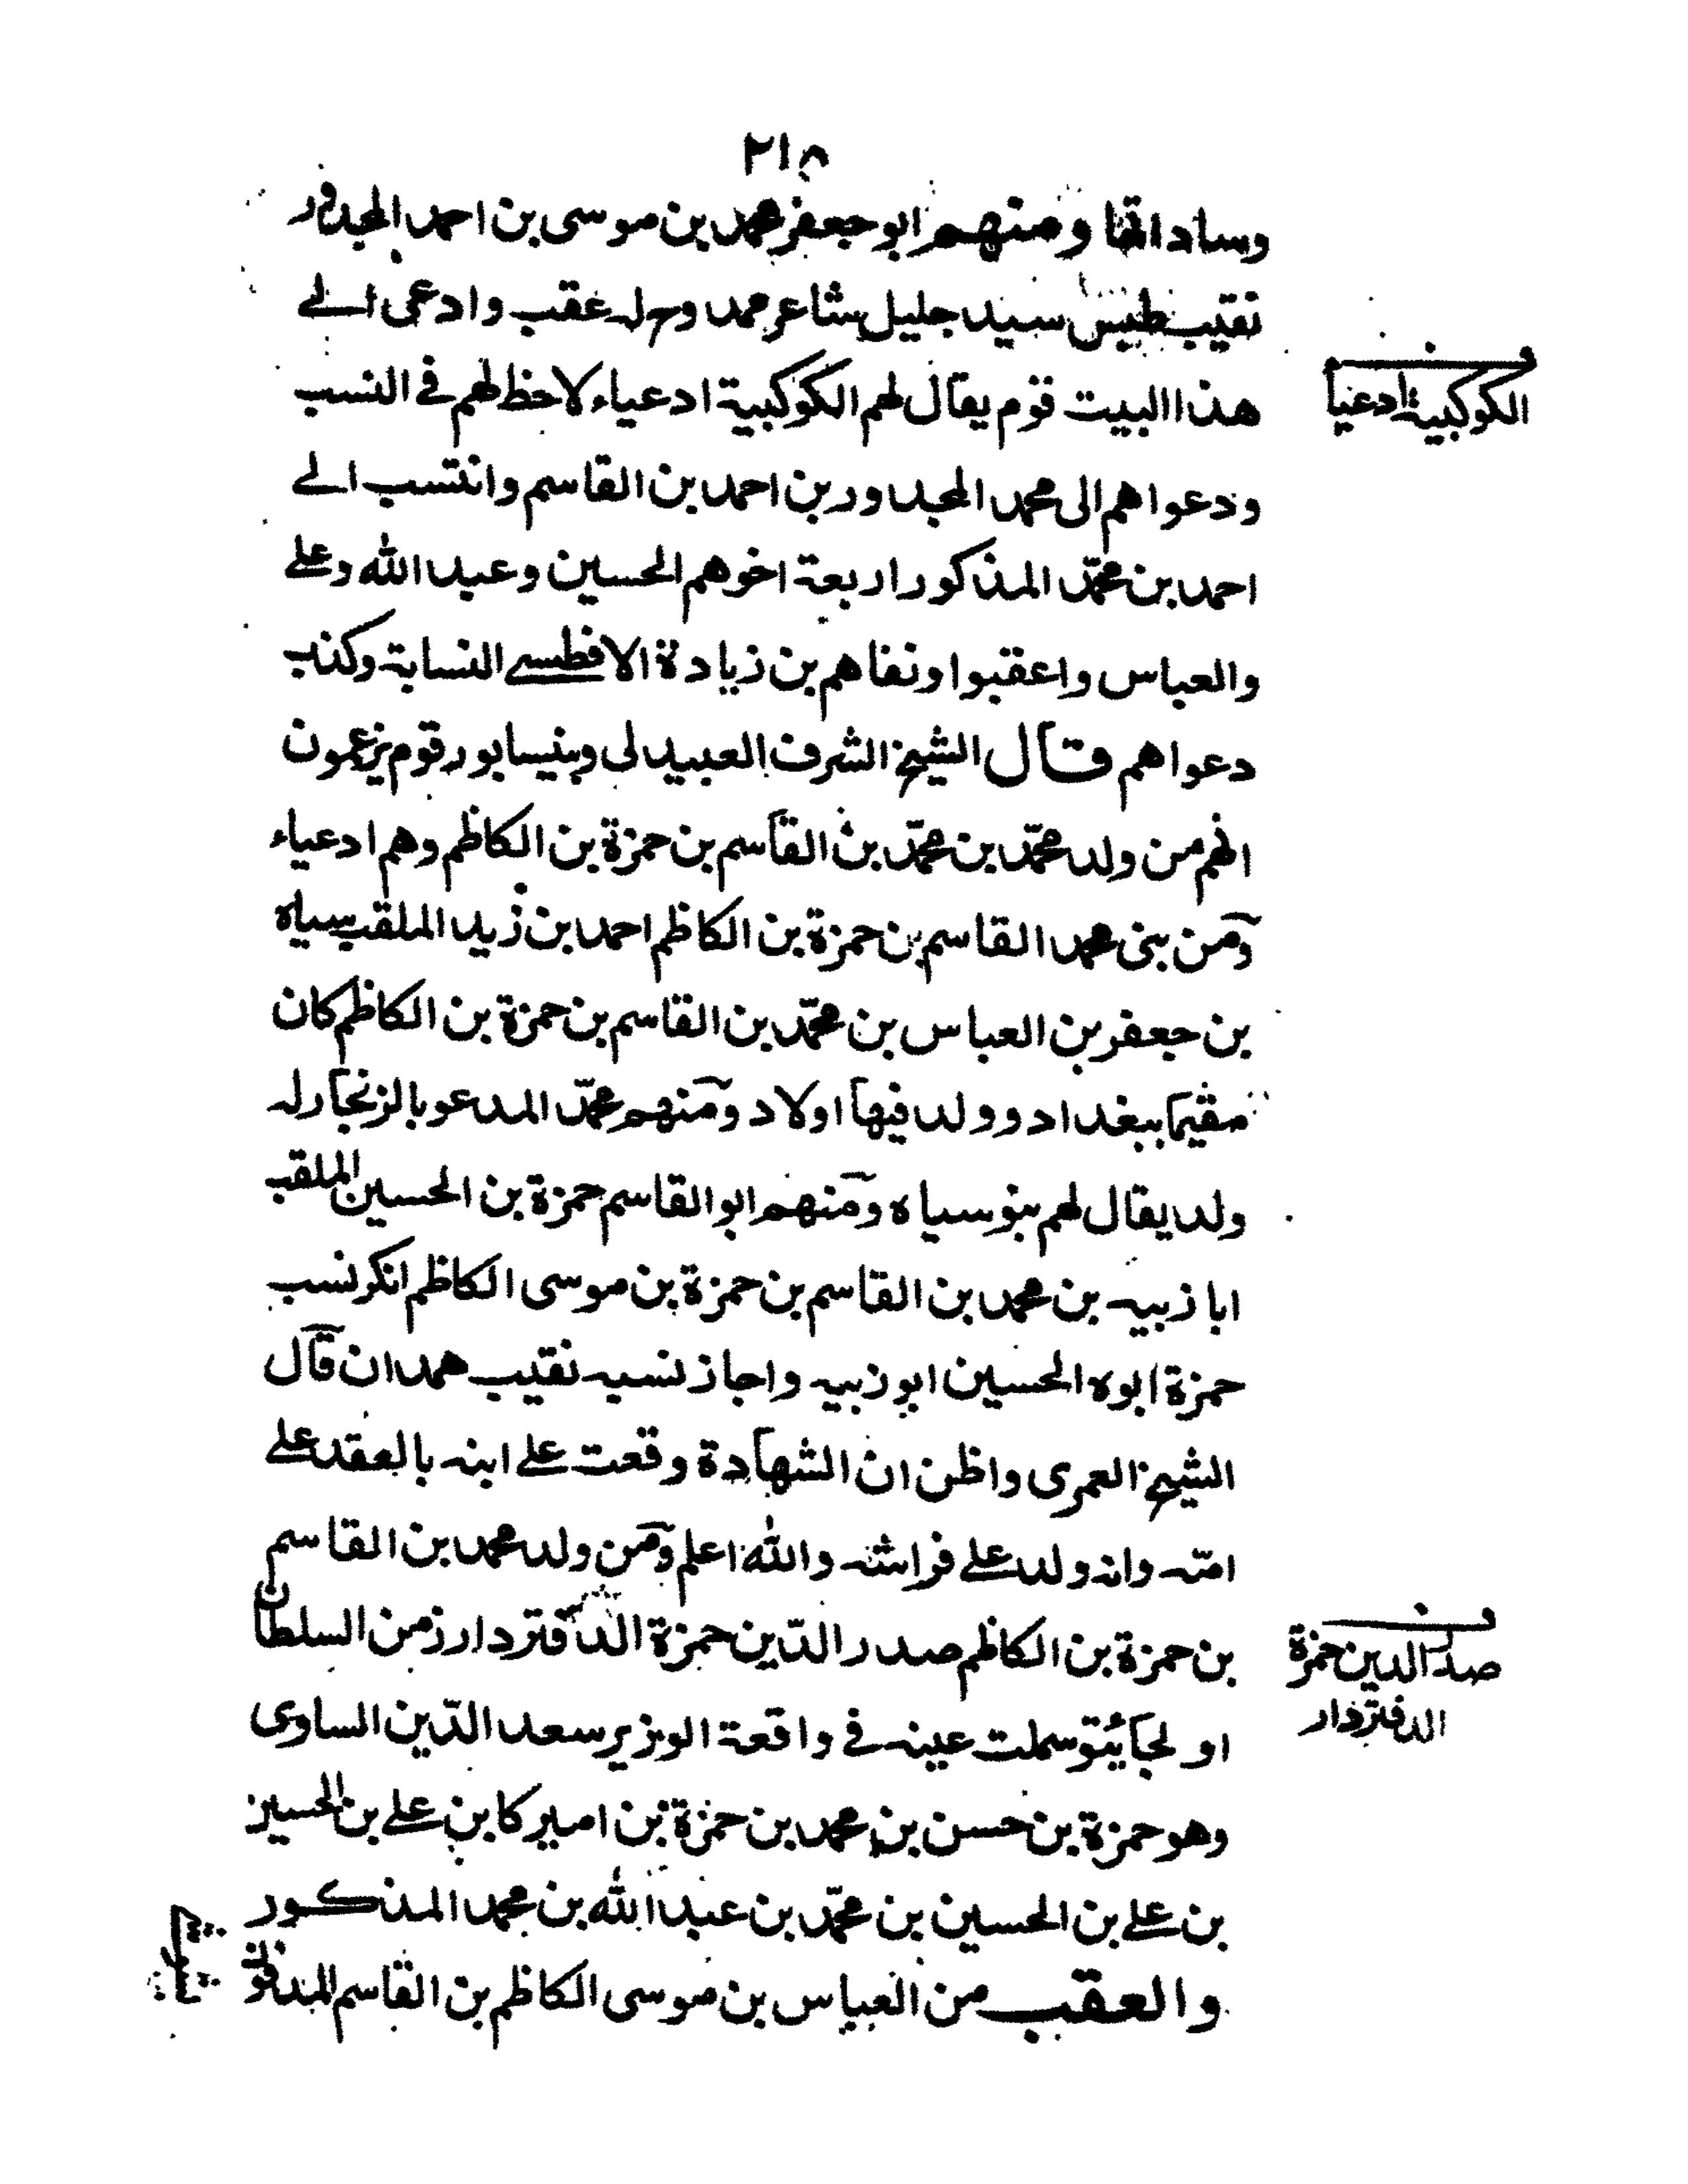 ٢١٨
وساداتها ومنهم ابو جعفر محمد بن موسى بن احمد المجدور
نقيب طيس سيد جليل شاعر محمد وح له عقب وادعى الے
هذا البيت قوم يقال لهم الكوكبية ادعياء لاحظ لهم فے النسب
الكوكبية ادعيا
ودعواهم الى محمد المجدور بن احمد بن القاسم وانتسب الے
احمد بن محمّد المذكور اربعة اخوهم الحسين وعبد الله وعلے
والعباس واعقبوا ونفاهم بن زيادة الافطسے النسابة وكذب
دعواهم قال الشيخ الشرف العبيدلى وبنيسابور قوم يزعمون
انهم من ولد محمّد بن محمّد بن القاسم بن حمزة بن الكاظم وهم ادعياء
ومن بنى محمد القاسم بن حمزة بن الكاظم احمد بن زيد الملقب سياه
بن جعفر بن العباس بن محمّد بن القاسم بن حمزة بن الكاظم كان
مقيما ببغداد وولد فيها اولاد ومنهم محمّد المدعو بالزنجار له
ولد يقال لهم بنو سياه ومنهم ابو القاسم حمزة بن الحسين الملقب
ابا زبيه بن محمد بن القاسم بن حمزة بن موسى الكاظم انكر نسب
حمزة ابوه الحسين ابو زبيه واجاز نسبه نقيب همدان قال
الشيخ العمرى واظن ان الشهادة وقعت علے ابنه بالعقد علے
امّه وانه ولد علے فراشه والله اعلم ومن ولد محمد بن القاسم
بن حمزة بن الكاظم صدر الدّين حمزة الدفتردار زمن السلطان
صدر الدين حمزة
الدفتردار
اولجائيتو سملت عينه فے واقعة الوزير سعد الدّين الساوى
وهو حمزة بن حسن بن محمد بن حمزة بن اميركا بن علے بن الحسين
بن علے بن الحسين بن محمّد بن عبد الله بن محمد المذكور
والعقب من العباس بن موسى الكاظم بن القاسم المدفون